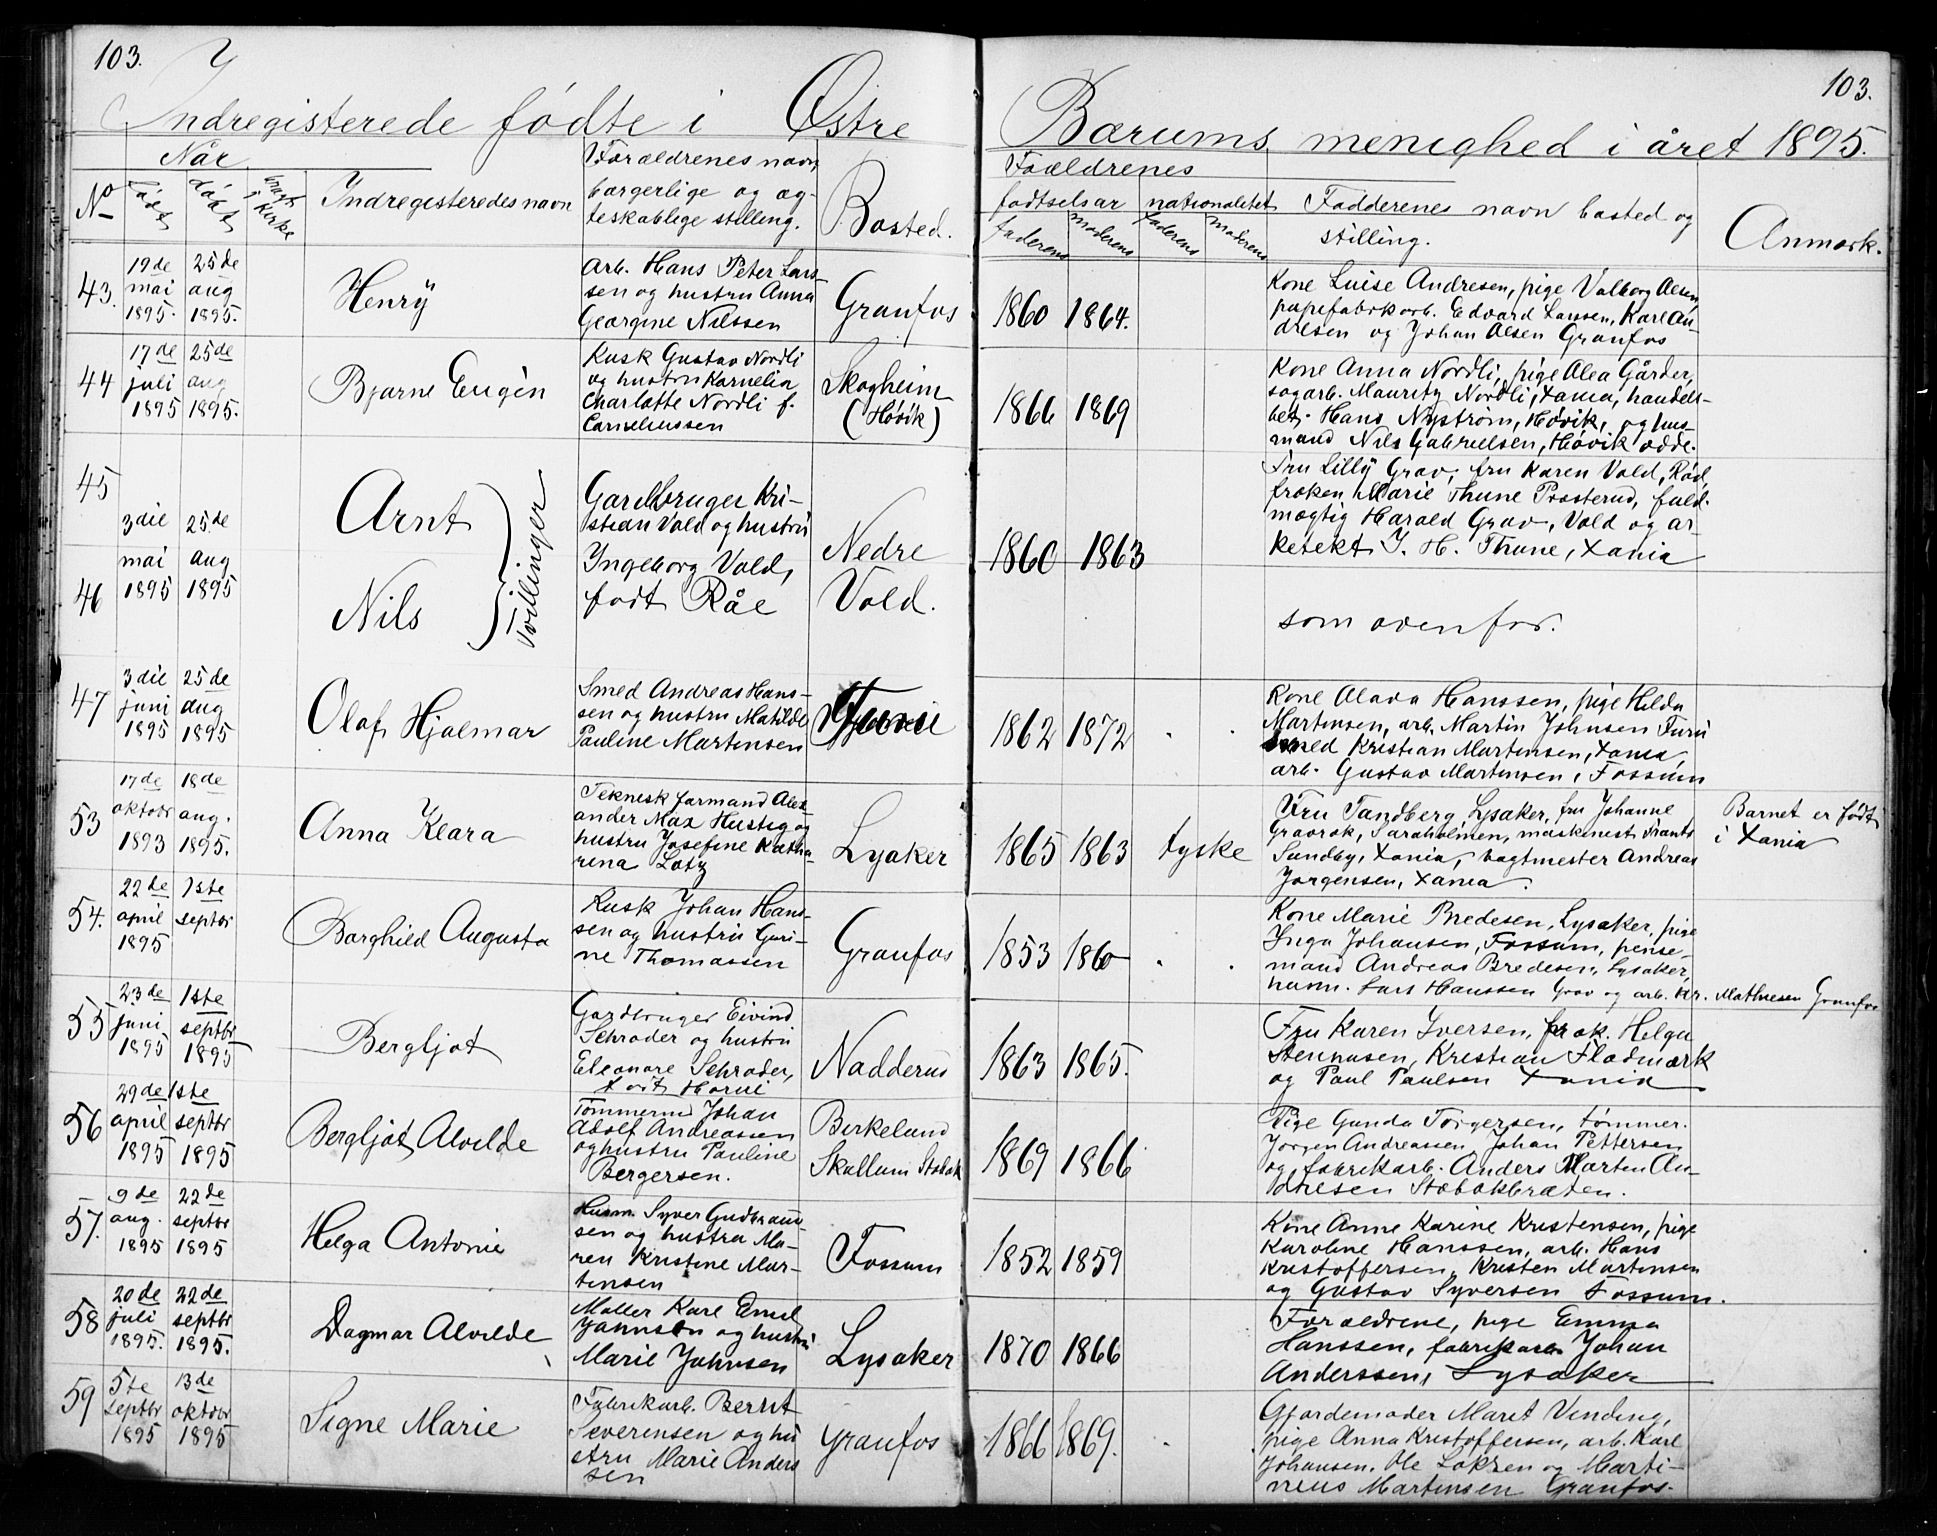 103.
103.
Indregisterede fødte i Østre
Bærums menighed i året 1895.
Når
No
født
døbt
bragt i kirke
Indregisteredes navn
Forældrenes navn,
borgerlige og æg-
teskablige stilling.
Bosted.
Foældrenes
fødtselsår
nationalitet
faderens
moderens
faderens
moderens
Fadderenes navn bosted og
stilling.
Anmærk.
43.
19de
mai
1895.
25de
aug
1895.
Henrÿ
Arb. Hans Peter Lars-
sen og hustru Anna
Georgine Nilssen
Granfos
1860
1864.
Kone Luise Andresen, pige Valborg Olsen,
papirfabrikarb. Edvard Larssen, Karl An-
dresen og Johan Olsen Granfos
44
17de
juli
1895
25de
aug
1895.
Bjarne Eugèn
Kusk Gustav Nordli
og hustru Kornelia
Charlotte Nordli f.
Corneliussen
Skogheim
(Høvik)
1866
1869
Kone Anna Nordli, pige Olea Gårder,
sagarb. Mauritz Nordli, Xania, handels-
bet. Hans Nystrøm, Høvik, og hus-
mand Nils Gabrielsen, Høvik ødde.
45
3die
mai
1895
25de
aug
1895
Arnt
Tvillinger
Gardbruger Kri-
stian Vold og hustru
Ingeborg Vold,
født Råe
Nedre
Vold.
1860
1863
Fru Lillÿ Grav, fru Karen Vold, Råd,
frøken Marie Thune Prosterud, fuld-
mægtig Harald Grav, Vold og ar-
ketekt J. H. Thune, Xania
46
Nils
som ovenfor.
47
3die
juni
1895
25de
aug
1895
Olaf Hjalmar
Smed Andreas Hans-
sen og hustru Matilde
Pauline Martensen
Furu
1862
1872
Kone Olava Hanssen, pige Hilda
Martensen, arb. Martin Johnsen Furu
smed Kristian Martensen, Xania,
arb. Gustav Martensen, Fossum
53
17de
oktobr
1893
18de
aug.
1895.
Anna Klara
Teknesk formand Alex
ander Max Hustig og
hustru Josefine Katha-
rina Lotz
Lysaker
1865
1863
tyske
Fru Tandberg, Lysaker, fru Johanne
Gravrok, Saraholmen, maskinist Frants
Sundby, Xania, vagtmester Andreas
Jørgensen, Xania.
Barnet er født
i Xania
54.
22de
april
1895
1ste
septbr
Borghild Augusta
Kusk Johan Hans-
sen og hustru Guri-
ne Thomassen
Granfos
1853
1860
Kone Marie Bredesen, Lysaker, pige
Inga Johansen, Fossum, pense-
mand Andreas Bredesen, Lysaker,
husm. Lars Hanssen Grav og arb. Kr. Mathiesen Granfos
55
23de
juni
1895
1ste
septbr
1895
Bergljot
Gardbruger Eivind
Schrøder og hustru
Eleonore Schrøder,
født Horne
Nadderud
1863
1865.
Fru Karen Iversen, frøk. Helga
Stenhusen, Kristian Flodmærk
og Paul Paulsen Xania
56
29de
april
1895
1ste
septbr
1895
Bergljot Alvilde
Tømmermd Johan
Adolf Andreassen
og hustru Pauline
Bergersen.
Birkelund
Skallum Stabæk
1869
1866
Pige Gunda Torgersen, tømmer.
Jørgen Andreassen, Johan Pettersen
og fabrikarb. Anders Marten An-
dresen Stabækbråten.
57.
9de
aug.
1895
22de
septbr
1895
Helga Antonie
Husm. Syver Gudbrand-
sen og hustru Ma-
ren Kristine Mar-
tensen
Fossum
1852
1859
Kone Anne Karine Kristensen, pige
Karoline Hanssen, arb. Hans
Kristoffersen, Kristen Martensen
og Gustav Syversen Fossum.
58
20de
juli
1895.
22de
septbr
1895.
Dagmar Alvilde
Møller Karl Emil
Johnsen og hustru
Marie Johnsen
Lysaker
1870
1866
Forældrene, pige Emma
Hanssen, fabrikarb. Johan
Anderssen, Lysaker
59
5te
septbr
1895
13de
oktobr
1895
Signe Marie
Fabrikarb. Bernt
Severinsen og hu
stru Marie Anders
sen
Granfos
1866
1869.
Gjordemoder Maret Vinding,
pige Anna Kristoffersen, arb. Karl
Johansen, Ole Løkken og Marti-
nius Martensen Granfos.